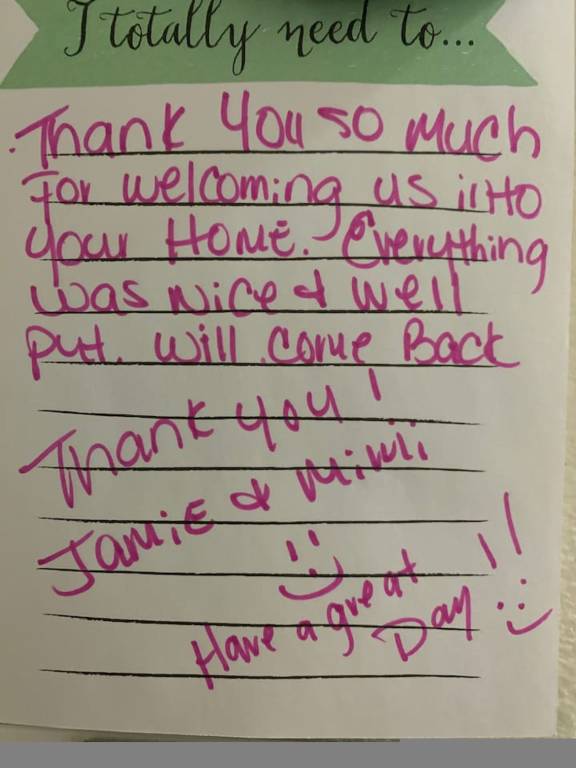 I totally need to...
Thank You so much
For welcoming us into
your Home. Everything
was nice & well
put. will come Back
Thank you!
Jamie & Mimii
Have a great
Day!!